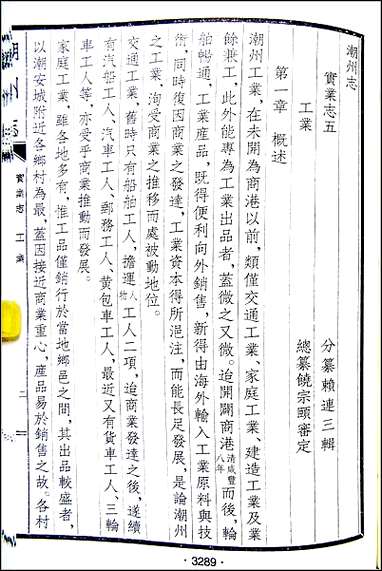 潮州志
實業志五
工業
分纂賴連三輯
總纂饒宗頤審定
第一章　概述
潮州工業、在未開為商港以前、類僅交通工業、家庭工業、建造工業及業
餘兼工、此外能專為工業出品者、蓋微之又微。迨開闢商港清咸豐八年而後、輪
舶暢通、工業產品、既得便利向外銷售、新得由海外輸入工業原料與技
術、同時復因商業之發達、工業資本得所浥注、而能長足發展、是論潮州
之工業、洵受商業之推移而處被動地位。
交通工業、舊時只有船舶工人、擔運人物工人二項、迨商業發達之後、遂續
有汽船工人、汽車工人、郵務工人、黃包車工人、最近又有貨車工人、三輪
車工人等、亦受乎商業推動而發展。
家庭工業、雖各地多有、惟工品僅銷行於當地鄉邑之間、其出品較盛者、
以潮安城附近各鄉村為最、蓋因接近商業重心、產品易於銷售之故。各村
潮州志
實業志　工業
二
·3289·